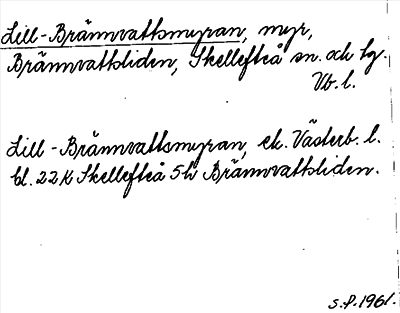 Lill-Brännvattsmyran, myr,
Brännvattsliden, Skellefteå sn. och tg.
Vb. l.
Lill-Brännvattsmyran, ek. Västerb. l.
bl. 22 K Skellefteå 5h Brännvattsliden.
S.P. 1961.